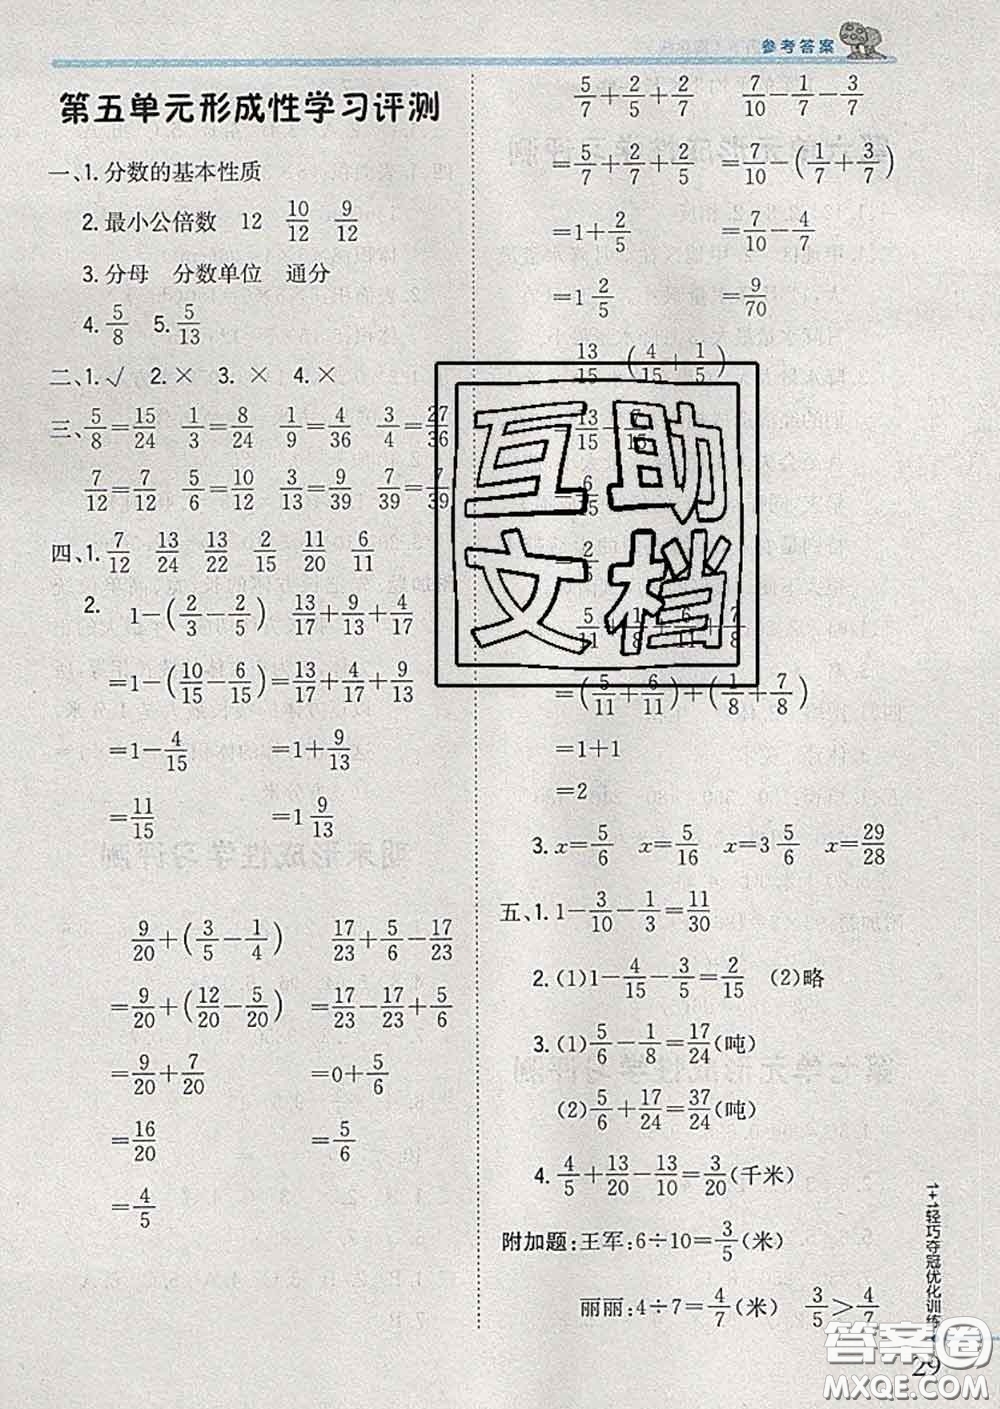 参考答案
第五单元形成性学习评测
一、1. 分数的基本性质
2. 最小公倍数 12 10/12 9/12
3. 分母 分数单位 通分
4. 5/8 5. 5/13
二、1. √ 2. × 3. × 4. ×
三、5/8=15/24 1/3=8/24 1/9=4/36 3/4=27/36
7/12=7/12 5/6=10/12 3/13=9/39 7/39=7/39
四、1. 7/12 13/24 13/22 2/15 11/20 6/11
2. 1-(2/3-2/5) 13/17+9/13+4/17
=1-(10/15-6/15) =13/17+4/17+9/13
=1-4/15 =1+9/13
=11/15 =1 9/13
9/20+(3/5-1/4) 17/23+5/6-17/23
=9/20+(12/20-5/20) =17/23-17/23+5/6
=9/20+7/20 =0+5/6
=16/20 =5/6
=4/5
5/7+2/5+2/7 7/10-1/7-3/7
=5/7+2/7+2/5 =7/10-(1/7+3/7)
=1+2/5 =7/10-4/7
=1 2/5 =9/70
13/15-(4/15+1/5)
13/15 7/15
6/15
2/5
5/11+1/8+6/11+7/8
=(5/11+6/11)+(1/8+7/8)
=1+1
=2
3. x=5/6 x=5/16 x=3 5/6 x=29/28
五、1. 1-3/10-1/3=11/30
2. (1)1-4/15-3/5=2/15 (2)略
3. (1)5/6-1/8=17/24(吨)
(2)5/6+17/24=37/24(吨)
4. 4/5+13/20-13/10=3/20(千米)
附加题:王军:6÷10=3/5(米)
丽丽:4÷7=4/7(米) 3/5>4/7
1+1轻巧夺冠优化训练
29
互助
文档
答案圈
MXQE.COM